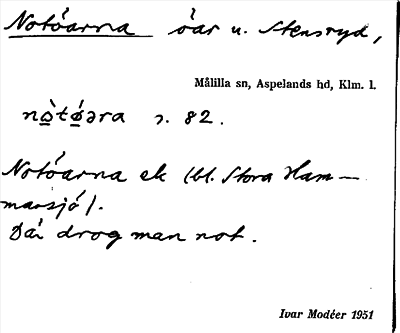 Notöarna öar u. Stensryd,
Målilla sn, Aspelands hd, Klm. l.
nò̲tǿ̲əra s. 82.
Notöarna ek (bl. Stora Ham-
marsjö).
Där drog man not.
Ivar Modéer 1951